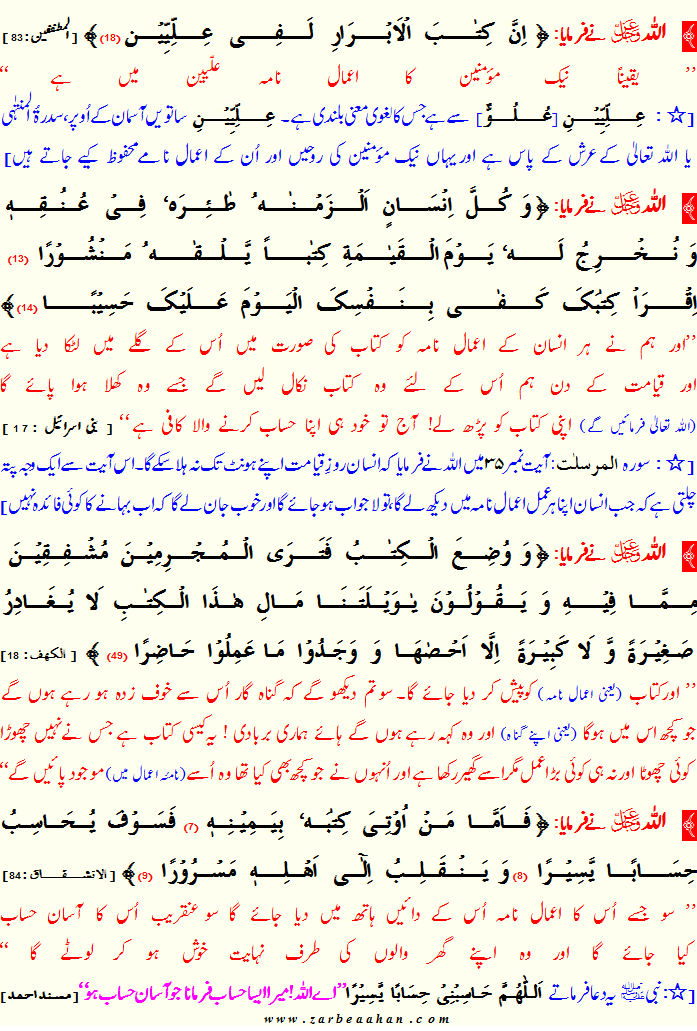 اللہ عزوجل نے فرمایا: ﴿ اِنَّ كِتٰبَ الْاَبْرَارِ لَفِى عِلِّيِّيْنَ (18) ﴾ [ المطففین : 83 ]
’’ یقیناً نیک مؤمنین کا اعمال نامہ علّیین میں ہے ‘‘
[☆ : عِلِّيِّيْنَ [عُلُوٌّ] سے ہے جس کا لغوی معنی بلندی ہے۔ عِلِّيِّيْنَ ساتویں آسمان کے اُوپر، سدرۃُ المنتہٰی
یا اللہ تعالیٰ کے عرش کے پاس ہے اور یہاں نیک مؤمنین کی روحیں اور اُن کے اعمال نامے محفوظ کیے جاتے ہیں]
اللہ عزوجل نے فرمایا: ﴿ وَ كُلَّ اِنْسَانٍ اَلْزَمْنٰهُ طٰٓئِرَهٗ فِىْ عُنُقِهٖ
وَ نُخْرِجُ لَهٗ يَوْمَ الْقِيٰمَةِ كِتٰبًا يَّلْقٰىهُ مَنْشُوْرًا (13)
اِقْرَاْ كِتٰبَكَ كَفٰى بِنَفْسِكَ الْيَوْمَ عَلَيْكَ حَسِيْبًا (14) ﴾
’’اور ہم نے ہر انسان کے اعمال نامہ کو کتاب کی صورت میں اُس کے گلے میں لٹکا دیا ہے
اور قیامت کے دن ہم اُس کے لئے وہ کتاب نکال لیں گے جسے وہ کھلا ہوا پائے گا
(اللہ تعالیٰ فرمائیں گے) اپنی کتاب کو پڑھ لے! آج تو خود ہی اپنا حساب کرنے والا کافی ہے‘‘ [ بنی اسرائیل : 17 ]
[☆ : سورہ المرسلٰت : آیت نمبر ۳۵ میں اللہ نے فرمایا کہ انسان روزِ قیامت اپنے ہونٹ تک نہ ہلا سکے گا۔ اس آیت سے ایک وجہ پتہ
چلتی ہے کہ جب انسان اپنا ہر عمل اعمال نامہ میں دیکھ لے گا، تو لاجواب ہو جائے گا اور خوب جان لے گا کہ اب بہانے کا کوئی فائدہ نہیں]
اللہ عزوجل نے فرمایا: ﴿ وَ وُضِعَ الْكِتٰبُ فَتَرَى الْمُجْرِمِيْنَ مُشْفِقِيْنَ
مِمَّا فِيْهِ وَ يَقُوْلُوْنَ يٰوَيْلَتَنَا مَالِ هٰذَا الْكِتٰبِ لَا يُغَادِرُ
صَغِيْرَةً وَّ لَا كَبِيْرَةً اِلَّا اَحْصٰهَا وَ وَجَدُوْا مَا عَمِلُوْا حَاضِرًا (49) ﴾ [ الکھف : 18 ]
’’ اور کتاب (یعنی اعمال نامہ) کو پیش کر دیا جائے گا۔ سو تم دیکھو گے کہ گناہ گار اُس سے خوف زدہ ہو رہے ہوں گے
جو کچھ اس میں ہوگا (یعنی اپنے گناہ) اور وہ کہہ رہے ہوں گے ہائے ہماری بربادی ! یہ کیسی کتاب ہے جس نے نہیں چھوڑا
کوئی چھوٹا اور نہ ہی کوئی بڑا عمل مگر اسے گھیر رکھا ہے اور اُنہوں نے جو کچھ بھی کیا تھا وہ اُسے (نامئہ اعمال میں) موجود پائیں گے‘‘
اللہ عزوجل نے فرمایا: ﴿ فَاَمَّا مَنْ اُوْتِىَ كِتٰبَهٗ بِيَمِيْنِهٖ (7) فَسَوْفَ يُحَاسَبُ
حِسَابًا يَّسِيْرًا (8) وَ يَنْقَلِبُ اِلٰٓى اَهْلِهٖ مَسْرُوْرًا (9) ﴾ [ الانشقاق : 84 ]
’’ سو جسے اُس کا اعمال نامہ اُس کے دائیں ہاتھ میں دیا جائے گا سو عنقریب اُس کا آسان حساب
کیا جائے گا اور وہ اپنے گھر والوں کی طرف نہایت خوش ہو کر لوٹے گا ‘‘
[☆: نبی ﷺ یہ دعا فرماتے اَللّٰهُمَّ حَاسِبْنِىْ حِسَابًا يَّسِيْرًا ’’اے اللہ! میرا ایسا حساب فرمانا جو آسان حساب ہو‘‘ [مسند احمد]
www.zarbeaahan.com